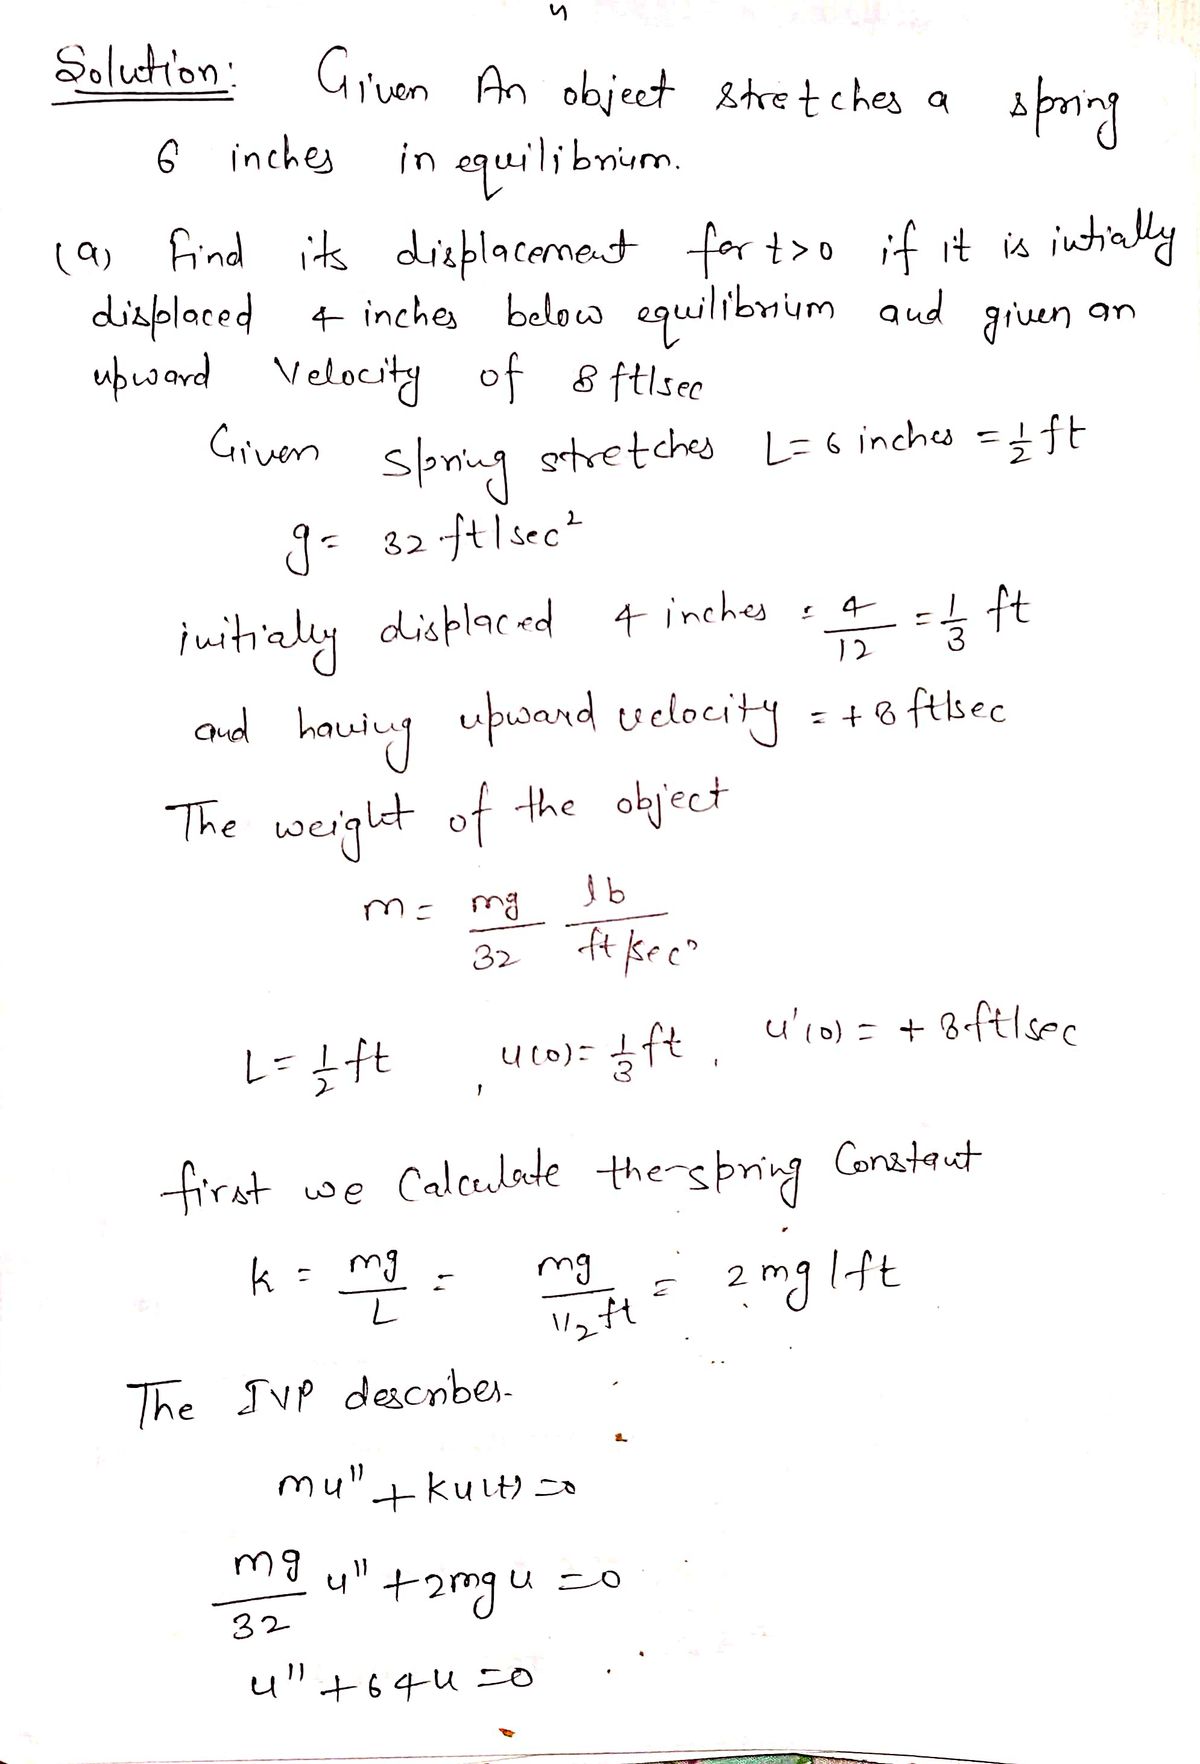 Solution: Given An object stretches a spring
6 inches in equilibrium.
(a) find its displacement for t>0 if it is intially
displaced 4 inches below equilibrium and given an
upward velocity of 8 ft/sec
Given spring stretches L = 6 inches = 1/2 ft
g = 32 ft/sec²
initially displaced 4 inches = 4/12 = 1/3 ft
and having upward velocity = +8 ft/sec
The weight of the object
m = mg/32 lb/ft/sec²
L = 1/2 ft , u(0) = 1/3 ft , u'(0) = + 8 ft/sec
first we Calculate the spring Constant
k = mg/L = mg/1/2 ft = 2 mg/ft
The IVP describes.
mu'' + ku(t) = 0
mg/32 u'' + 2mgu = 0
u'' + 64u = 0